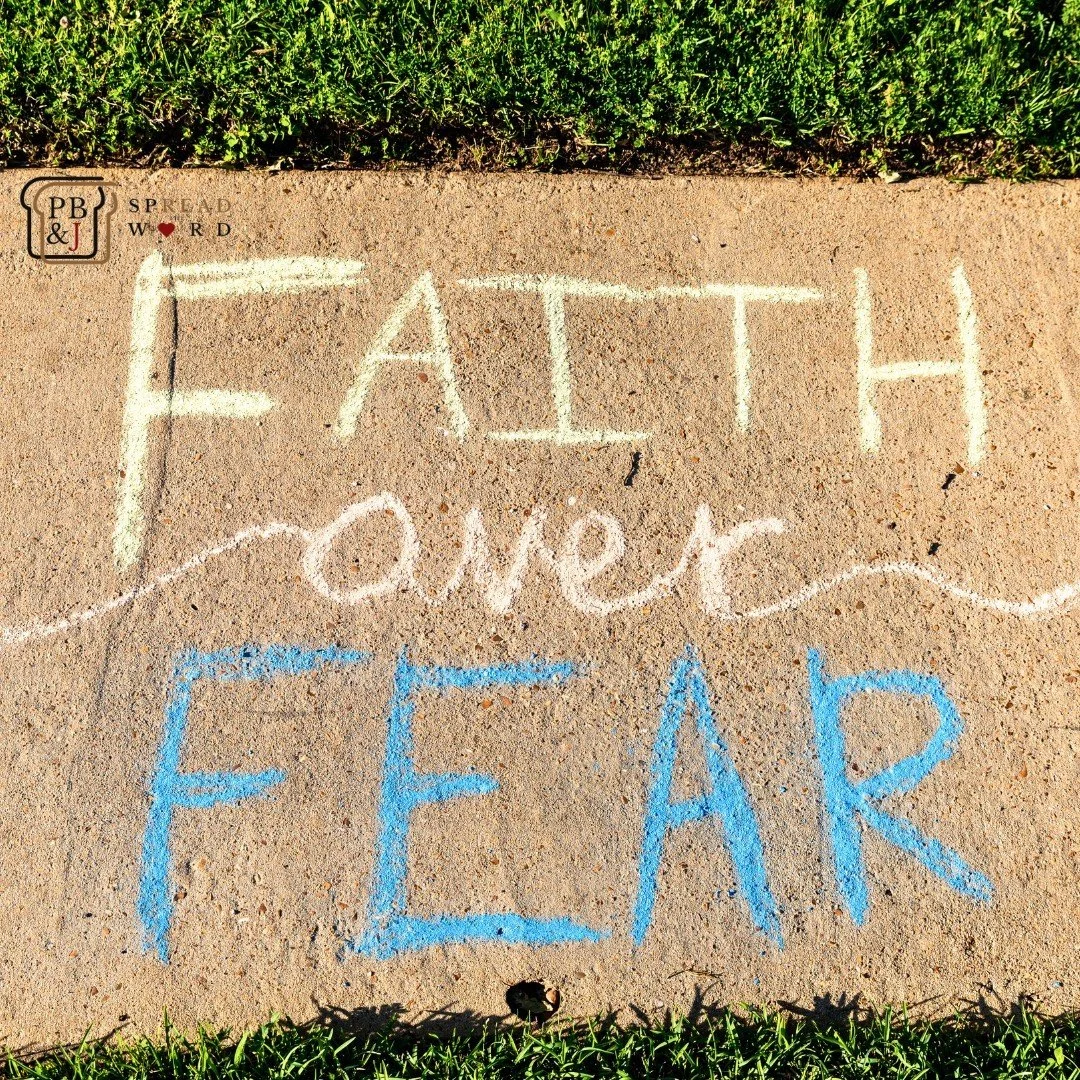 PB SPREAD
&J W♥RD
FAITH
over
FEAR